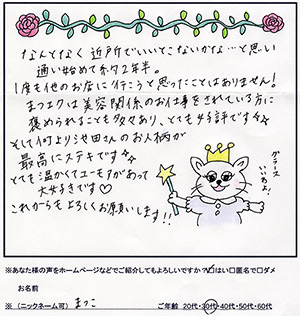 なんとなく近所でいいとこないかな…と思い
通い始めて約2年半。
1度も他のお店に行こうと思ったことはありません!
まつエクは美容関係のお仕事をされている方に
褒められることも多々あり、とても好評です☆☆
そして何より池田さんのお人柄が
最高にステキです☆☆
とても温かくてユーモアがあって
大好きです♡
これからもよろしくお願いします!!
※あなた様の声をホームページなどでご紹介してもよろしいですか?☑はい□匿名で□ダメ
お名前
※(ニックネーム可) まっこ
ご年齢 20代・30代・40代・50代・60代